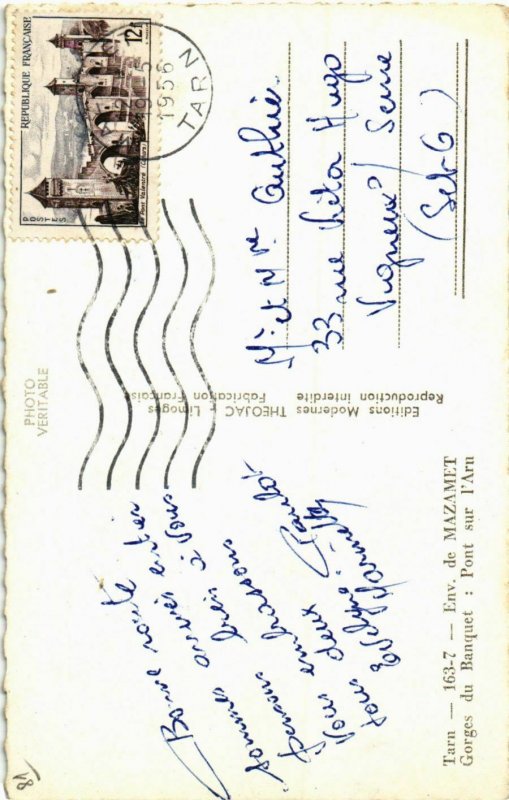 Tarn — 163-7 — Env. de MAZAMET
Gorges du Banquet : Pont sur l'Arn
Bonne route
sommes arrivés entier
Pensons bien à vous
Vous embrassons
tous deux
Evelyne
Editions Modernes THEOJAC - Limoges
Reproduction interdite Fabrication Française
PHOTO
VERITABLE
REPUBLIQUE FRANÇAISE
12F
POSTES
Pont Valentré (Cahors)
1956
TARN
Mr et Mme Authié.
33 rue Victor Hugo
Vigneux s/ Seine
(Set-O)
81